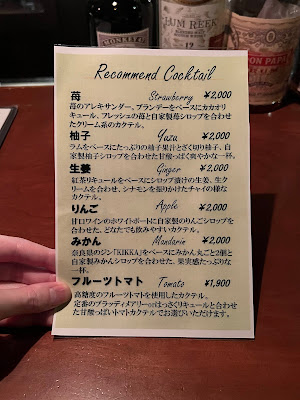 MONKEY
RUM REEK
12
DON PAPA
Recommend Cocktail
苺 Strawberry ¥2,000
苺のアレキサンダー。ブランデーをベースにカカオリ
キュール、フレッシュの苺と自家製苺シロップを合わせ
たクリーム系のカクテル。
柚子 Yuzu ¥2,000
ラムをベースにたっぷりの柚子果汁とざく切り柚子、自
家製柚子シロップを合わせた甘酸っぱ爽やかな一杯。
生姜 Ginger ¥2,000
紅茶リキュールをベースにシロップ漬けの生姜、生ク
リームを合わせ、シナモンを振りかけたチャイの様な
カクテル。
りんご Apple ¥2,000
甘口ワインのホワイトポートに自家製のりんごシロップを
合わせた、どなたでも飲みやすいカクテル。
みかん Mandarin ¥2,000
奈良県のジン「KIKKA」をベースにみかん丸ごと2個と
自家製みかんシロップを合わせた、果実感たっぷりな
一杯。
フルーツトマト Tomato ¥1,900
高糖度のフルーツトマトを使用したカクテル。
定番のブラッディメアリーorはっさくリキュールと合わせ
た甘酸っぱいトマトカクテルでお選びいただけます。